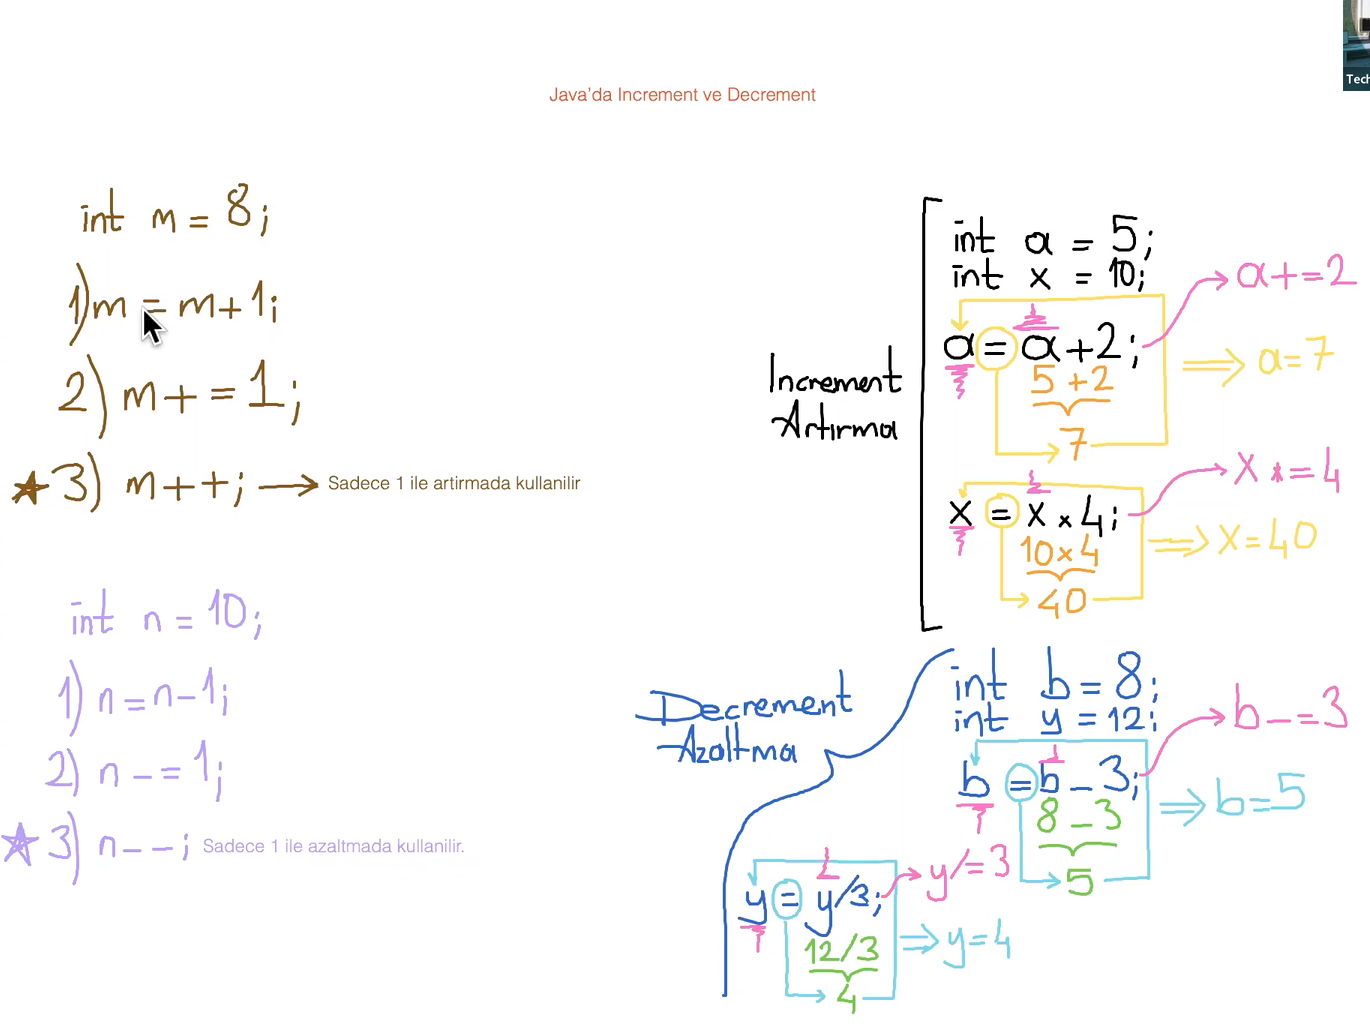 Tech
Java'da Increment ve Decrement
int m = 8;
1) m = m + 1;
2) m + = 1;
3) m + + ;
Sadece 1 ile artirmada kullanilir
int n = 10;
1) n = n - 1;
2) n - = 1;
3) n - - ;
Sadece 1 ile azaltmada kullanilir.
Increment
Artırma
int a = 5;
int x = 10;
a = a + 2;
a + = 2
5 + 2
7
a = 7
x = x * 4;
x * = 4
10 x 4
40
x = 40
Decrement
Azaltma
int b = 8;
int y = 12;
b = b - 3;
b - = 3
8 - 3
5
b = 5
y = y / 3;
y / = 3
12 / 3
4
y = 4